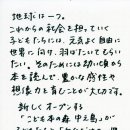 地球は一つ。
これからの社会を担っていく
子どもたちには、元気よく自由に
世界に向け、羽ばたいてもらい
たい。そのためには幼い頃から
本を読んで、豊かな感性や
想像力を育むことが大切です。
新しくオープンする
「こども本の森 中之島」が